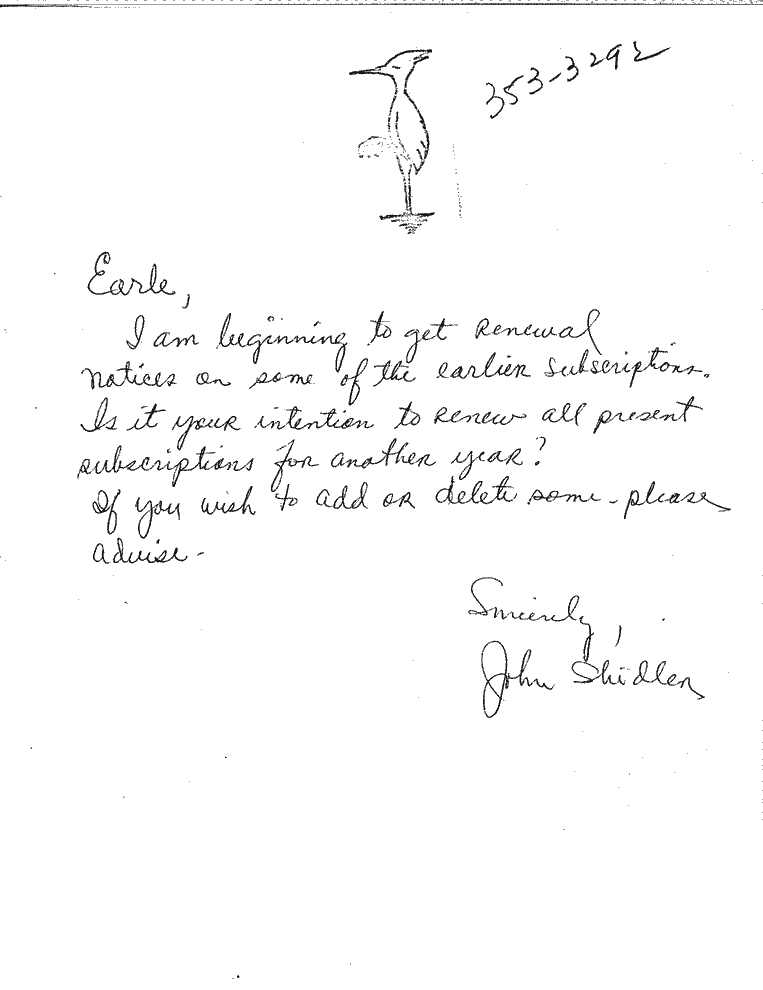 353-3292
Earle,
I am beginning to get renewal
notices on some of the earlier subscriptions.
Is it your intention to renew all present
subscriptions for another year?
If you wish to add or delete some - please
advise -
Sincerely,
John Shidler